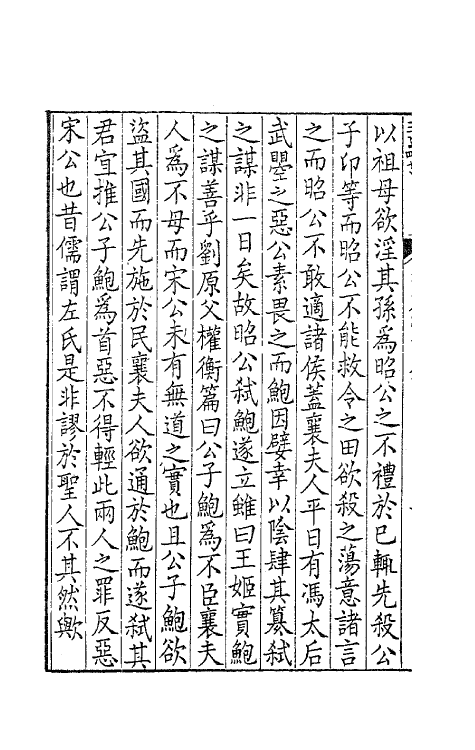 以祖母欲淫其孫爲昭公之不禮於已輒先殺公
子卬等而昭公不能救令之田欲殺之蕩意諸言
之而昭公不敢適諸侯蓋襄夫人平日有馮太后
武曌之惡公素畏之而鮑因嬖幸以陰肆其篡弑
之謀非一日矣故昭公弑鮑遂立雖曰王姬實鮑
之謀善乎劉原父權衡篇曰公子鮑爲不臣襄夫
人爲不母而宋公未有無道之實也且公子鮑欲
盜其國而先施於民襄夫人欲通於鮑而遂弑其
君宜推公子鮑爲首惡不得輕此兩人之罪反惡
宋公也昔儒謂左氏是非謬於聖人不其然歟